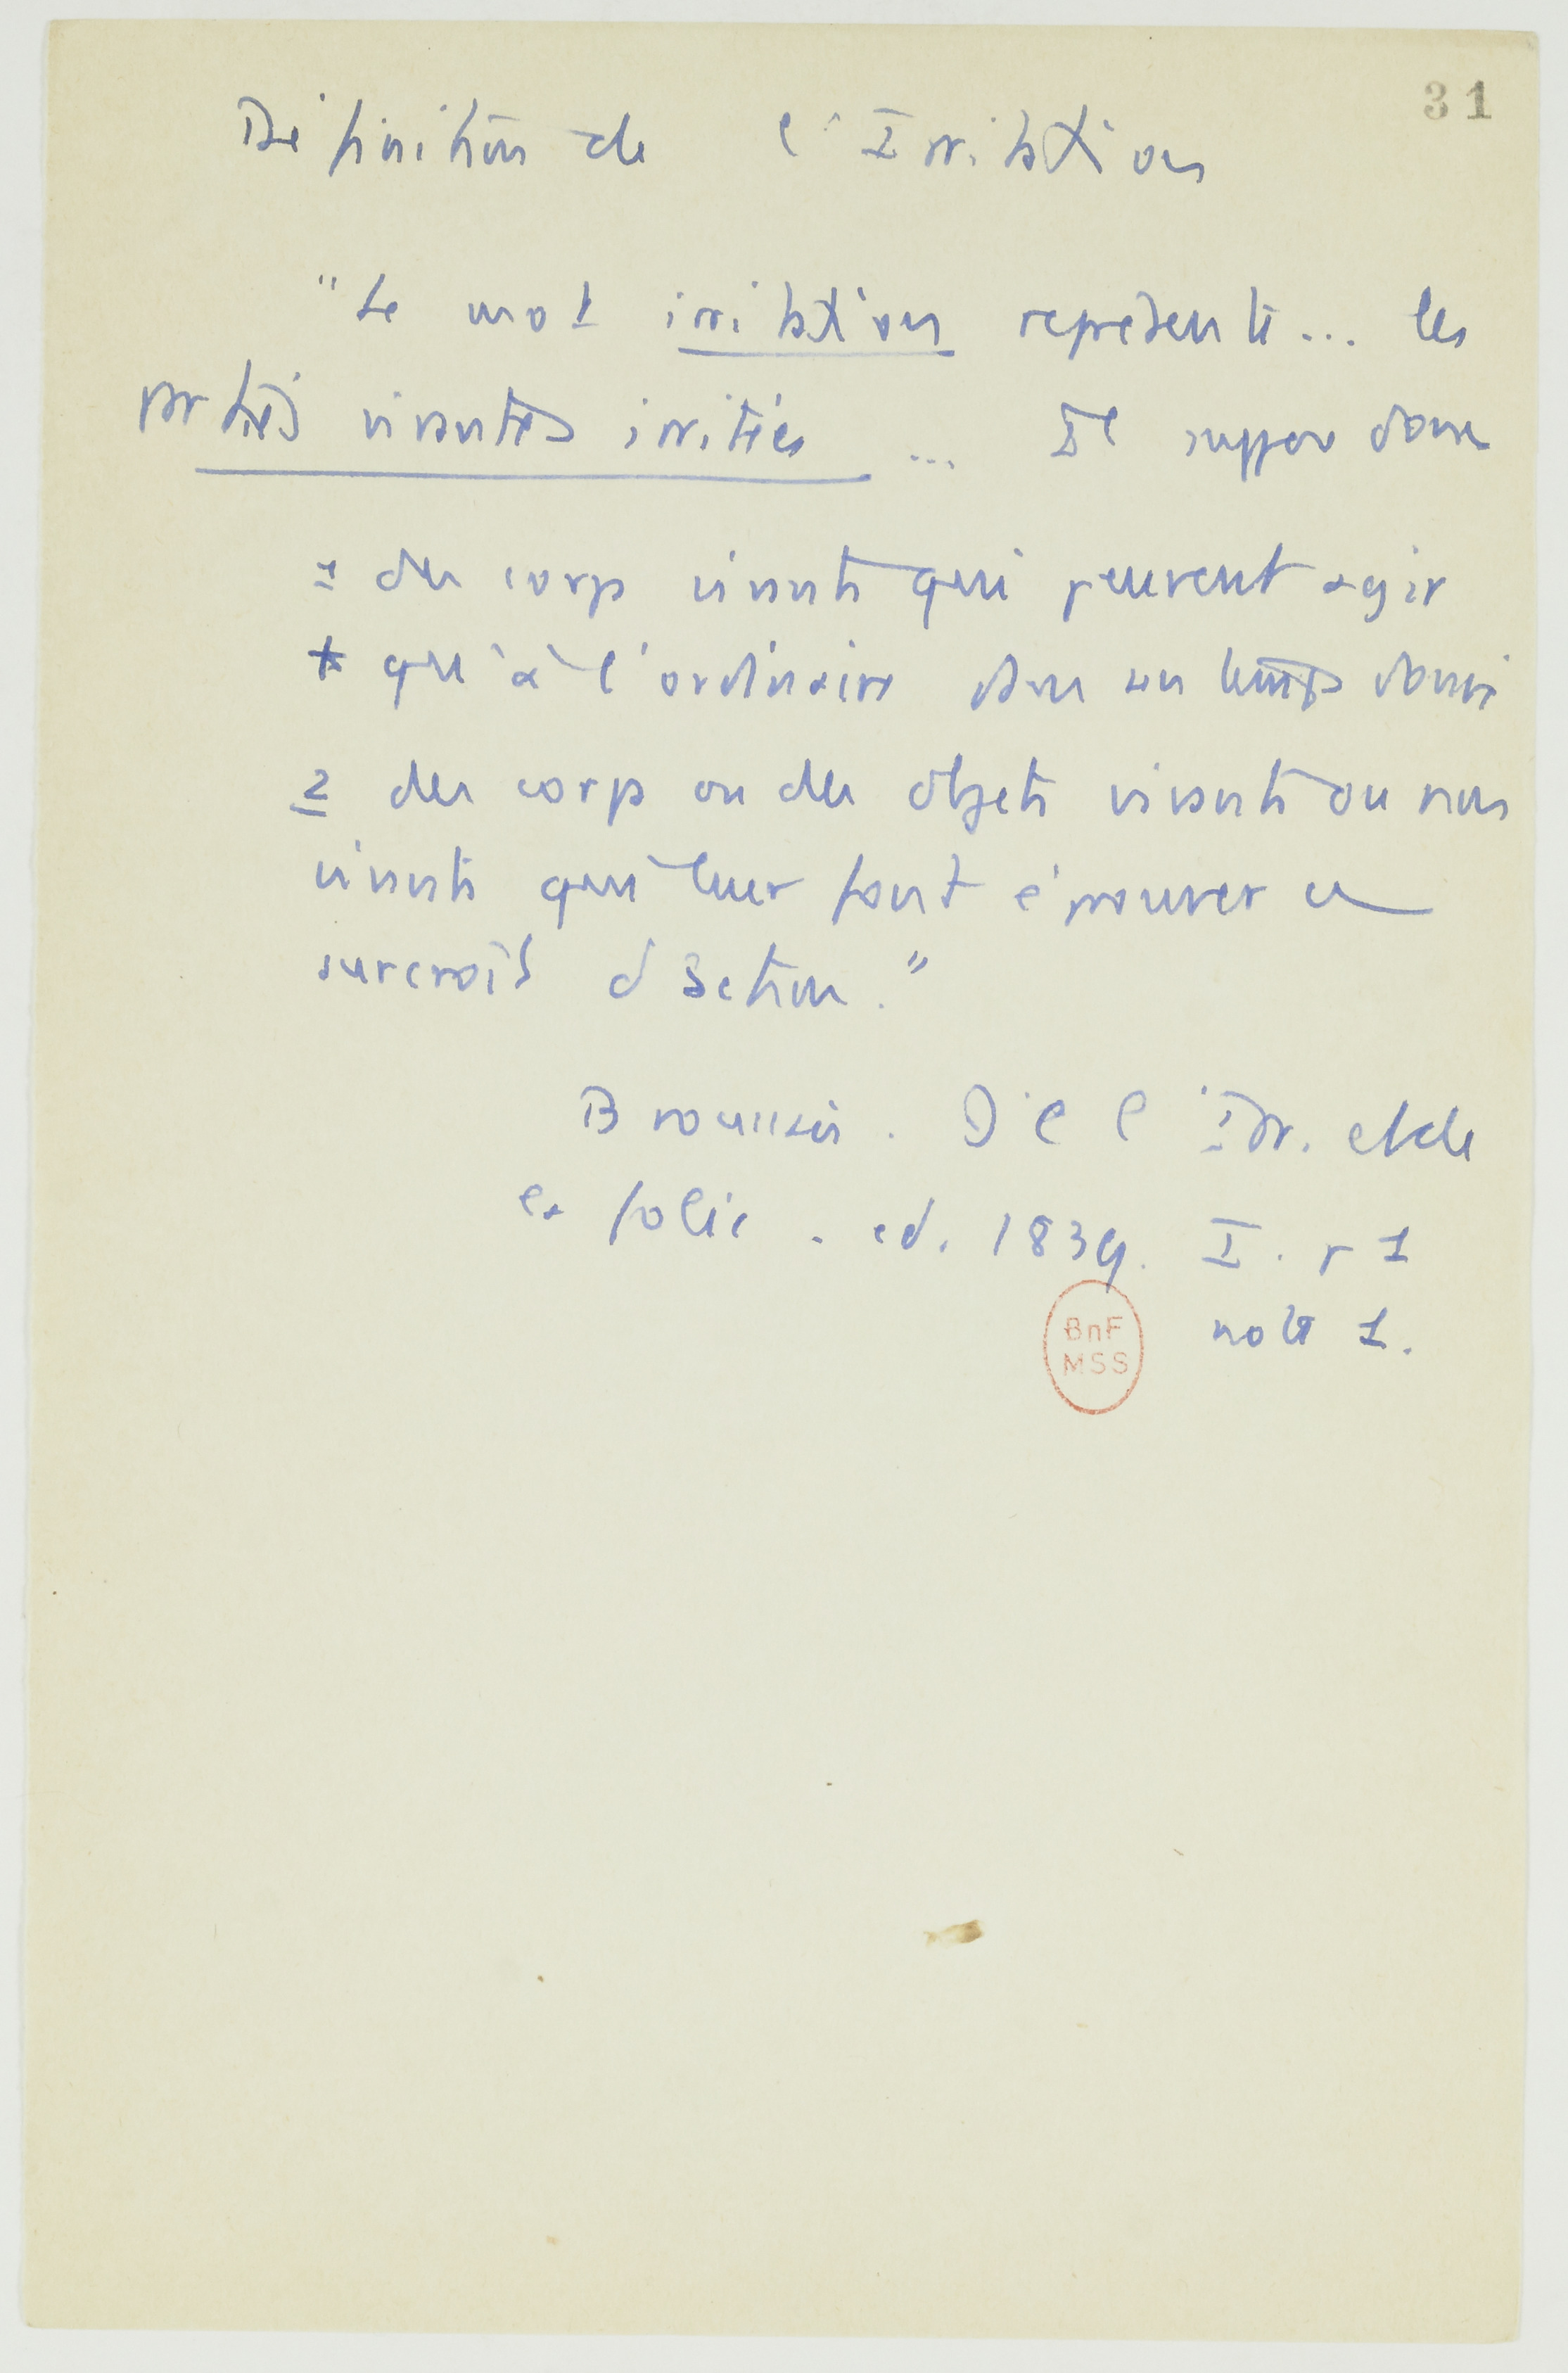 31
Définition de l'Irritation
"Le mot irritation représente... les
parties vivantes irritées ... Il suppose donc
1 des corps vivants qui peuvent agir
+ qu'à l'ordinaire dans un temps donné
2 des corps ou des objets vivants ou non
vivants qui leur font éprouver ce
surcroît d'action."
Broussais. De l'Irr. et de
la folie. ed. 1839. I. p 1
note 1.
BnF
MSS